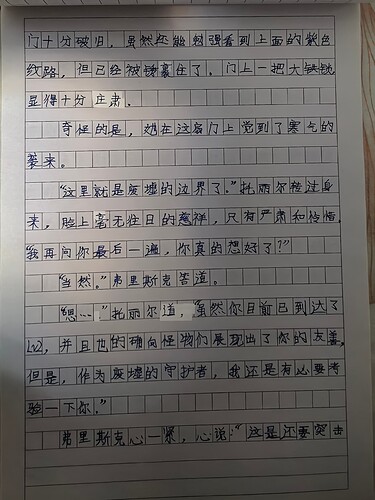 门十分破旧，虽然还能勉强看到上面的紫色
纹路，但已经被锈裹住了。门上一把大铁锁
显得十分庄肃。
奇怪的是，她在这扇门上觉到了寒气的
袭来。
“这里就是废墟的边界了。”托丽尔转过身
来，脸上毫无往日的慈祥，只有严肃和
“我再问你最后一遍，你真的想好了？”
“当然。”弗里斯克答道。
“恩……”托丽尔道，“虽然你目前已到达了
LV2，并且也的确向怪物们展现出了你的友善，
但是，作为废墟的守护者，我还是有必要考
验一下你。”
弗里斯克心一紧，心说：“这是还要突击